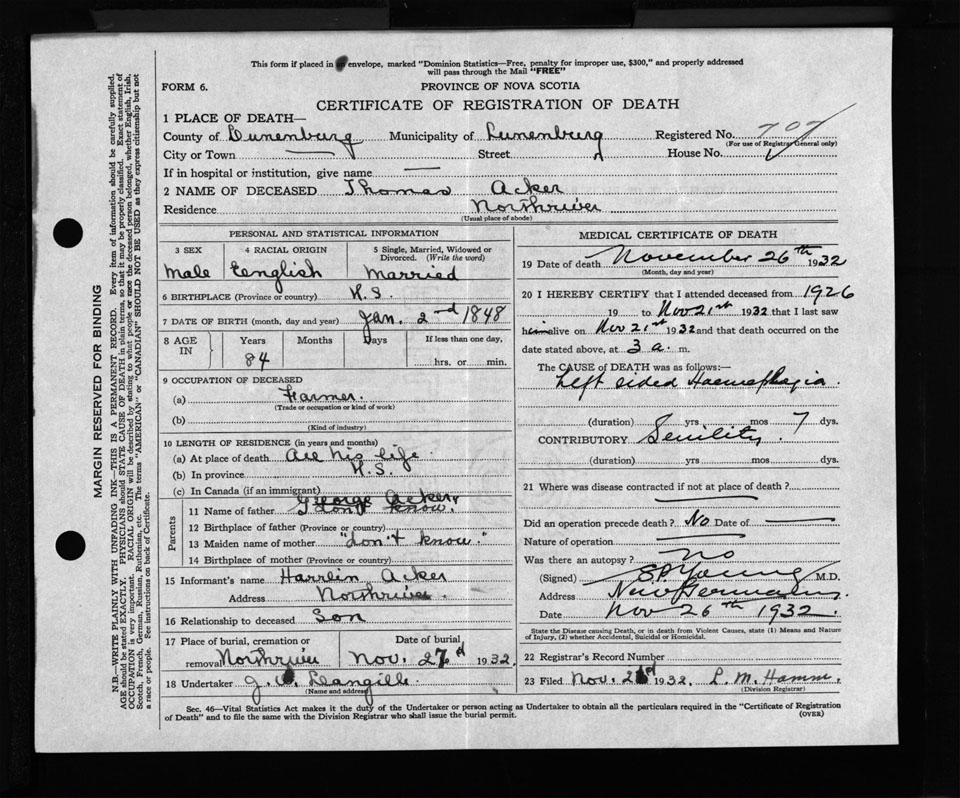 This form if placed in an envelope, marked "Dominion Statistics—Free, penalty for improper use, $300," and properly addressed
will pass through the Mail "FREE"
FORM 6.
PROVINCE OF NOVA SCOTIA
CERTIFICATE OF REGISTRATION OF DEATH
1 PLACE OF DEATH—
County of Lunenburg Municipality of Lunenburg Registered No. 707
(For use of Registrar General only)
City or Town — Street House No.
If in hospital or institution, give name —
2 NAME OF DECEASED Thomas Acker
Residence Northriver
(Usual place of abode)
PERSONAL AND STATISTICAL INFORMATION
3 SEX
Male
4 RACIAL ORIGIN
English
5 Single, Married, Widowed or
Divorced. (Write the word)
Married
6 BIRTHPLACE (Province or country) N.S.
7 DATE OF BIRTH (month, day and year) Jan. 2nd 1848
8 AGE IN
Years
84
Months
Days
If less than one day,
hrs. or min.
9 OCCUPATION OF DECEASED
(a) Farmer
(Trade or occupation or kind of work)
(b)
(Kind of industry)
10 LENGTH OF RESIDENCE (in years and months)
(a) At place of death All his life
(b) In province N.S.
(c) In Canada (if an immigrant)
Parents
George Acker
11 Name of father don't know.
12 Birthplace of father (Province or country)
13 Maiden name of mother "don't know."
14 Birthplace of mother (Province or country)
15 Informant's name Harrlin Acker
Address Northriver
16 Relationship to deceased Son
17 Place of burial, cremation or
removal Northriver
Date of burial
Nov. 27 1932
18 Undertaker J. Langille
(Name and address)
MEDICAL CERTIFICATE OF DEATH
19 Date of death November 26th 1932
(Month, day and year)
20 I HEREBY CERTIFY that I attended deceased from 1926
19 to Nov 21st 1932 that I last saw
him alive on Nov 21st 1932 and that death occurred on the
date stated above, at 3 a. m.
The CAUSE of DEATH was as follows:—
Left sided Haemephagia.
(duration) yrs mos 7 dys.
CONTRIBUTORY Senility.
(duration) yrs mos dys.
21 Where was disease contracted if not at place of death?
Did an operation precede death? No Date of —
Nature of operation —
Was there an autopsy? no
(Signed) S.P. Young M.D.
Address New Germany
Date Nov 26th 1932.
State the Disease causing Death, or in death from Violent Causes, state (1) Means and Nature
of Injury, (2) whether Accidental, Suicidal or Homicidal.
22 Registrar's Record Number
23 Filed Nov. 1932. L. M. Hamm,
(Division Registrar)
Sec. 46—Vital Statistics Act makes it the duty of the Undertaker or person acting as Undertaker to obtain all the particulars required in the "Certificate of Registration
of Death" and to file the same with the Division Registrar who shall issue the burial permit.
(OVER)
MARGIN RESERVED FOR BINDING
N.B.—WRITE PLAINLY WITH UNFADING INK—THIS IS A PERMANENT RECORD. Every item of information should be carefully supplied.
AGE should be stated EXACTLY. PHYSICIANS should STATE CAUSE OF DEATH in plain terms, so that it may be properly classified. Exact statement of
OCCUPATION is very important. RACIAL ORIGIN will be described by stating to what people or race the deceased person belonged, whether English, Irish,
Scotch, French, German, Russian, Ruthenian, etc. The terms "AMERICAN" or "CANADIAN" SHOULD NOT BE USED as they express citizenship but not
a race or people. See instructions on back of Certificate.